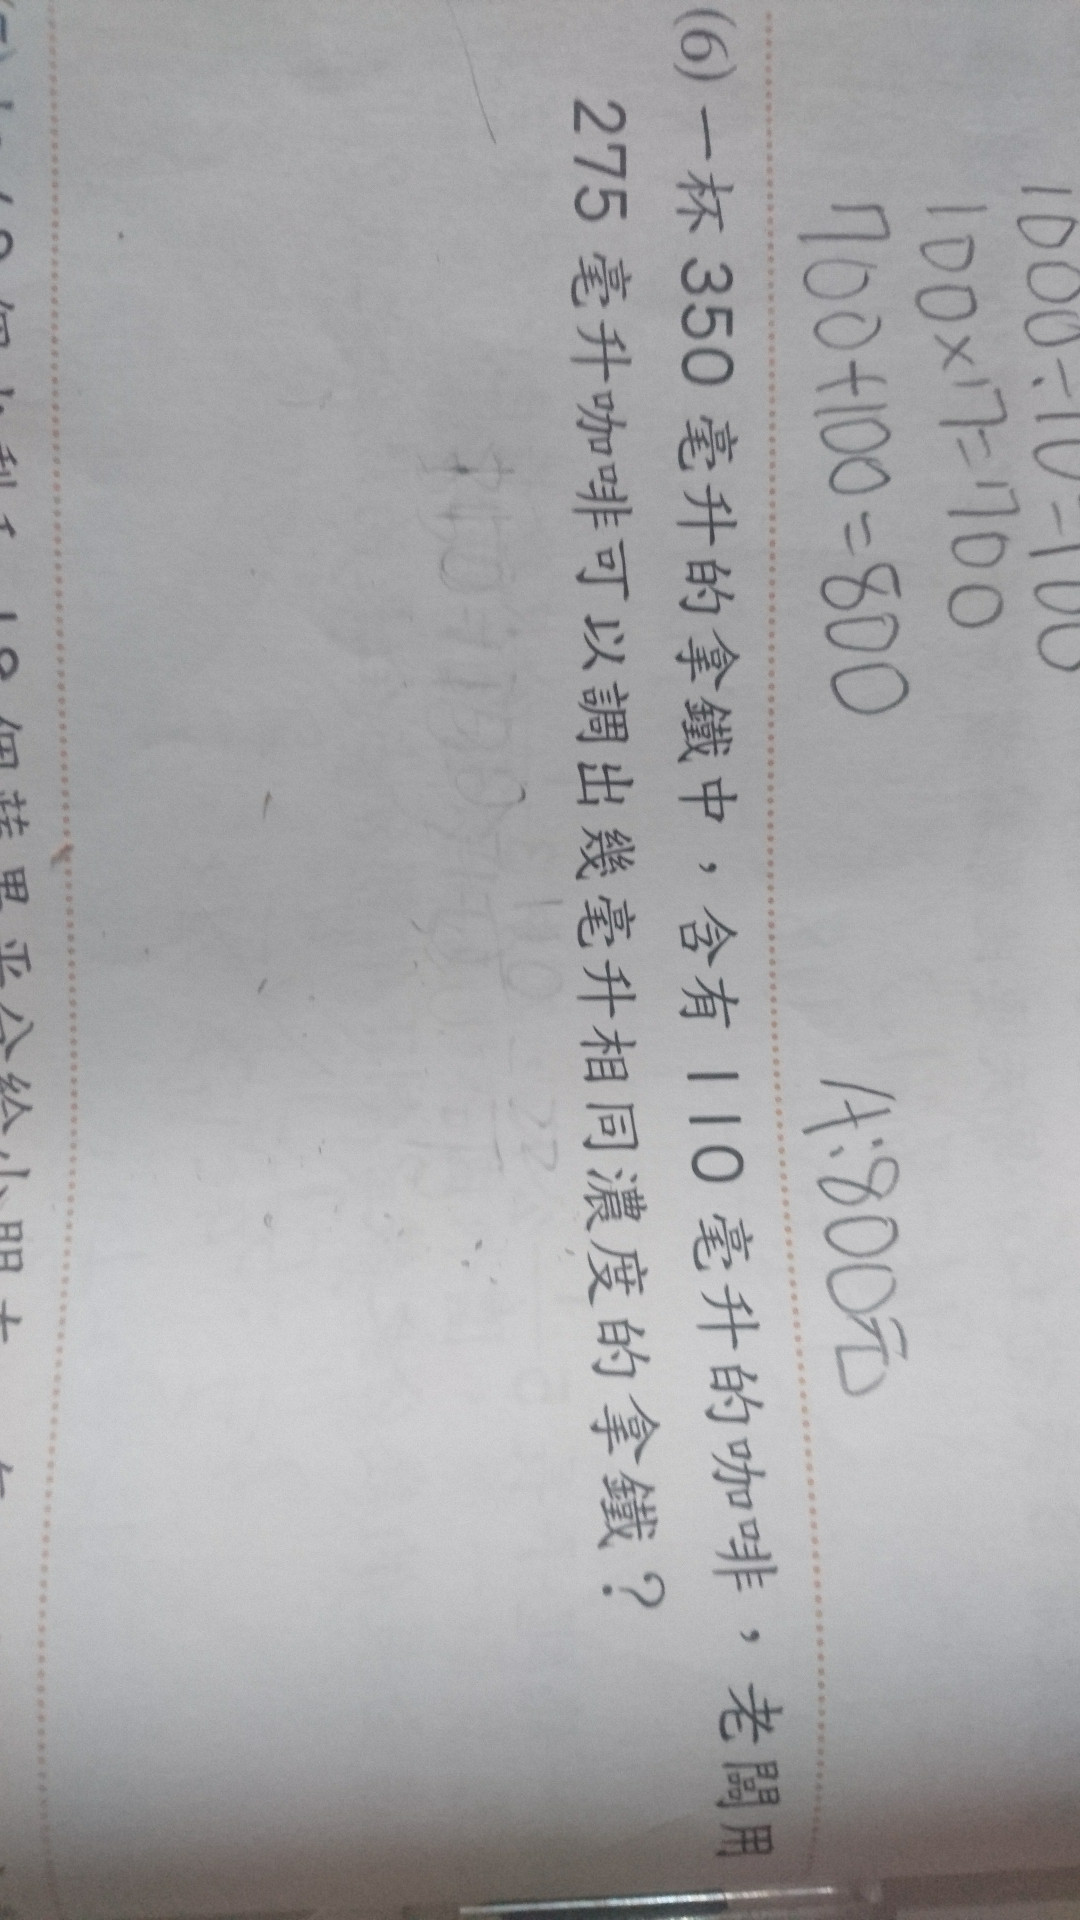 1000÷10=100
100×7=700
700+100=800
A:800元
(6)一杯 350 毫升的拿鐵中，含有 110 毫升的咖啡，老闆用
275 毫升咖啡可以調出幾毫升相同濃度的拿鐵？